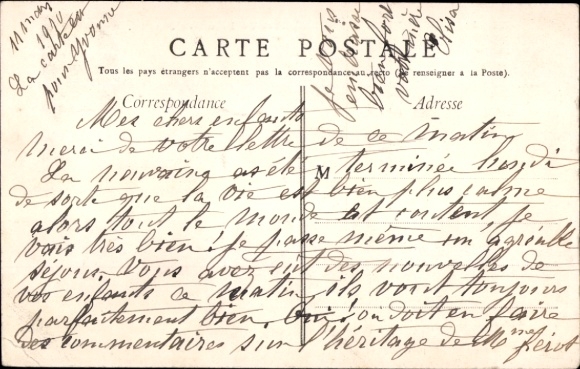 11 mars
1910
La carte est
pour Yvonne
Je vous
embrasse
bien fort
Lisa
CARTE POSTALE
Tous les pays étrangers n'acceptent pas la correspondance au recto (se renseigner à la Poste).
Correspondance
Adresse
M
Mes chers enfants
merci de votre lettre de ce matin
La neuvaine a été terminée lundi
de sorte que la vie est bien plus calme
alors tout le monde est content, je
vais très bien ! je passe même un agréable
séjour. Vous avez eu des nouvelles de
vos enfants ce matin, ils vont toujours
parfaitement bien. Oui ! on doit en faire
des commentaires sur l'héritage de Mme